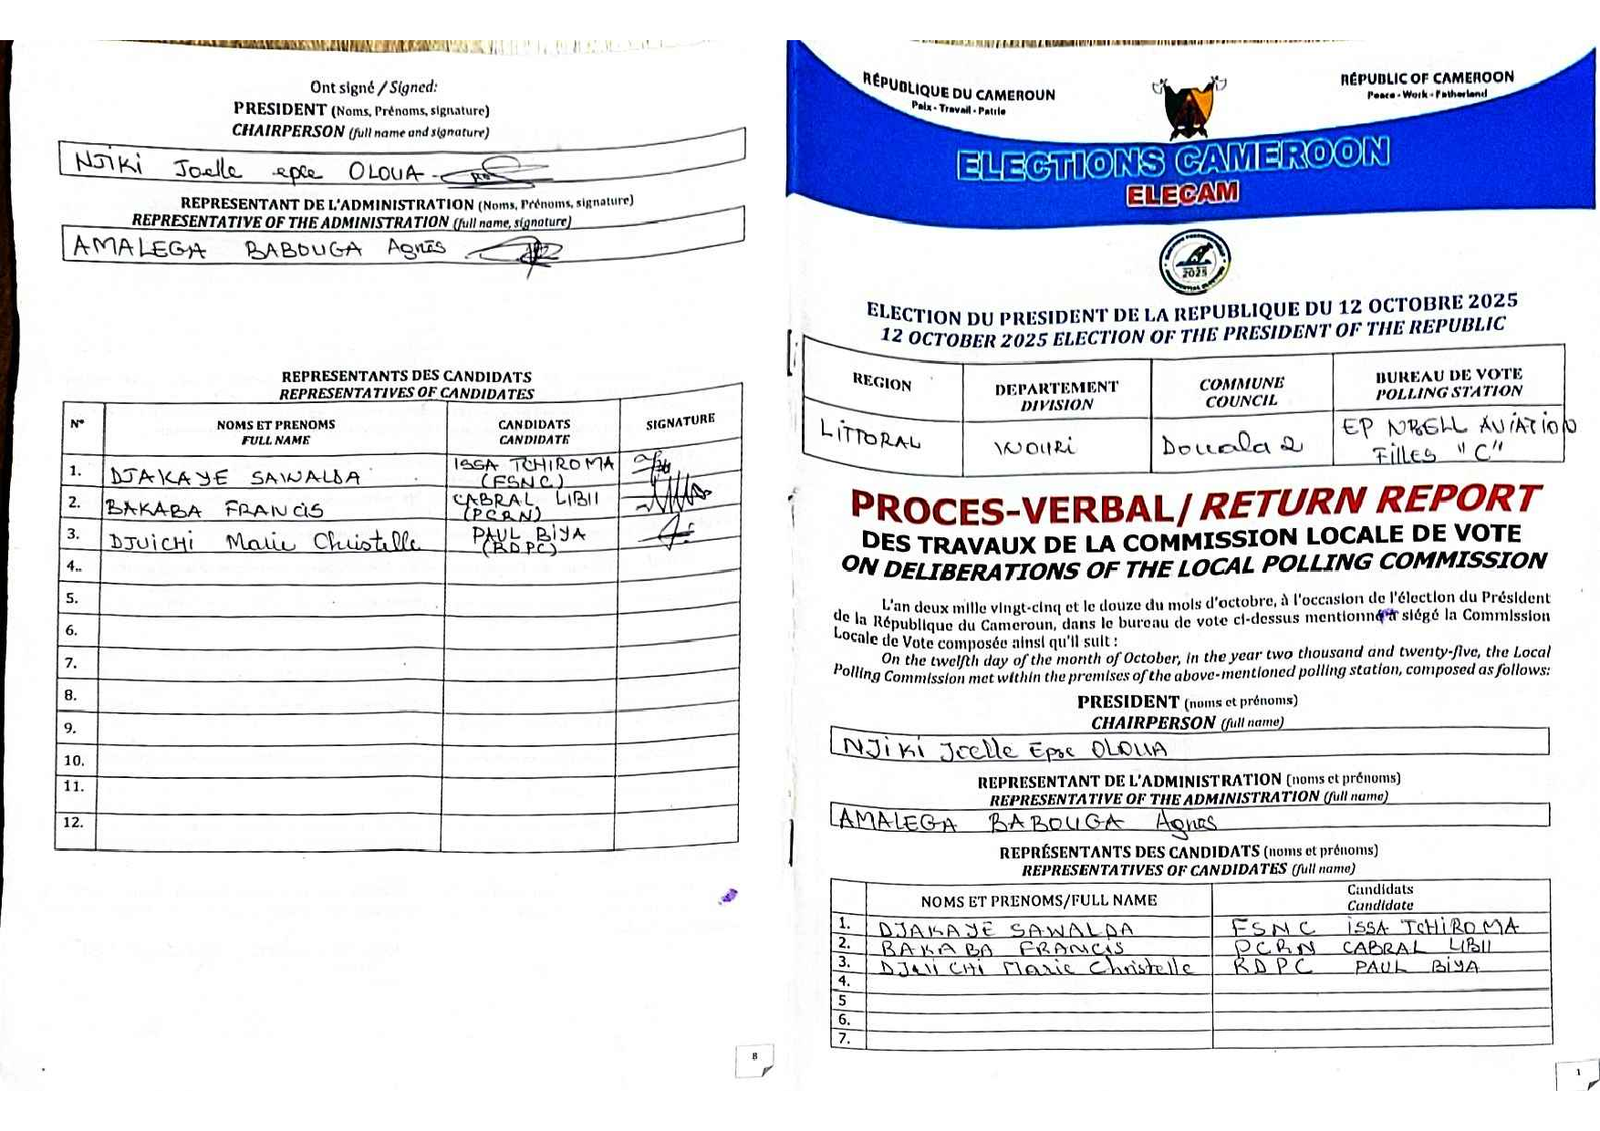 Ont signé / Signed:
PRESIDENT (Noms, Prénoms, signature)
CHAIRPERSON (full name and signature)
NJIKI Joelle epse OLOUA
REPRESENTANT DE L'ADMINISTRATION (Noms, Prénoms, signature)
REPRESENTATIVE OF THE ADMINISTRATION (full name, signature)
AMALEGA BABOUGA Agnès
REPRESENTANTS DES CANDIDATS
REPRESENTATIVES OF CANDIDATES
N° NOMS ET PRENOMS FULL NAME CANDIDATS CANDIDATE SIGNATURE
1. DJAKAYE SAWALDA ISSA TCHIROMA (FSNC)
2. BAKABA FRANCIS CABRAL LIBII (PCRN)
3. DJUICHI Marie Christelle PAUL BIYA (RDPC)
4..
5.
6.
7.
8.
9.
10.
11.
12.
8
RÉPUBLIQUE DU CAMEROUN
Paix - Travail - Patrie
RÉPUBLIC OF CAMEROON
Peace - Work - Fatherland
ELECTIONS CAMEROON
ELECAM
2025
ELECTION DU PRESIDENT DE LA REPUBLIQUE DU 12 OCTOBRE 2025
12 OCTOBER 2025 ELECTION OF THE PRESIDENT OF THE REPUBLIC
REGION DEPARTEMENT DIVISION COMMUNE COUNCIL BUREAU DE VOTE POLLING STATION
LITTORAL WOURI Douala 2 EP NBELL AVIATION Filles "C"
PROCES-VERBAL/ RETURN REPORT
DES TRAVAUX DE LA COMMISSION LOCALE DE VOTE
ON DELIBERATIONS OF THE LOCAL POLLING COMMISSION
L'an deux mille vingt-cinq et le douze du mois d'octobre, à l'occasion de l'élection du Président
de la République du Cameroun, dans le bureau de vote ci-dessus mentionné a siégé la Commission
Locale de Vote composée ainsi qu'il suit :
On the twelfth day of the month of October, in the year two thousand and twenty-five, the Local
Polling Commission met within the premises of the above-mentioned polling station, composed as follows:
PRESIDENT (noms et prénoms)
CHAIRPERSON (full name)
NJIKI Joelle Epse OLOUA
REPRESENTANT DE L'ADMINISTRATION (noms et prénoms)
REPRESENTATIVE OF THE ADMINISTRATION (full name)
AMALEGA BABOUGA Agnes
REPRÉSENTANTS DES CANDIDATS (noms et prénoms)
REPRESENTATIVES OF CANDIDATES (full name)
NOMS ET PRENOMS/FULL NAME Candidats Candidate
1. DJAKAYE SAWALDA FSNC ISSA TCHIROMA
2. BAKABA FRANCIS PCRN CABRAL LIBII
3. DJUICHI Marie Christelle RDPC PAUL BIYA
4.
5
6.
7.
1